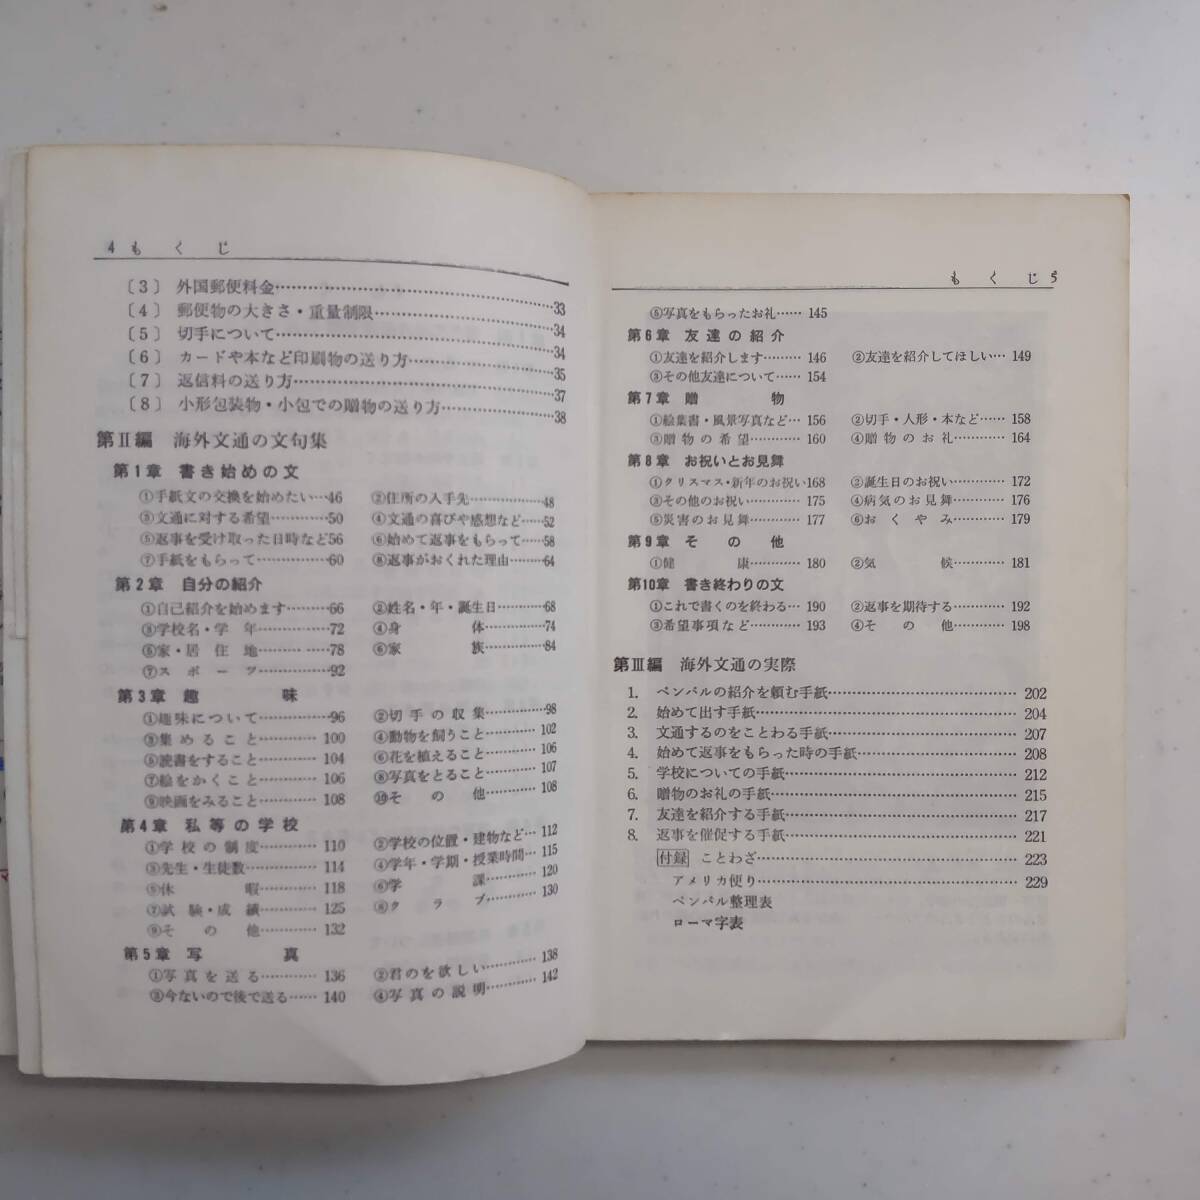 4 もくじ
〔3〕 外国郵便料金……33
〔4〕 郵便物の大きさ・重量制限……34
〔5〕 切手について……34
〔6〕 カードや本など印刷物の送り方……35
〔7〕 返信料の送り方……37
〔8〕 小形包装物・小包での贈物の送り方……38
第Ⅱ編 海外文通の文句集
第1章 書き始めの文
①手紙文の交換を始めたい…46 ②住所の入手先……48
③文通に対する希望……50 ④文通の喜びや感想など……52
⑤返事を受け取った日時など56 ⑥始めて返事をもらって……58
⑦手紙をもらって……60 ⑧返事がおくれた理由……64
第2章 自分の紹介
①自己紹介を始めます……66 ②姓名・年・誕生日……68
③学校名・学年……72 ④身体……74
⑤家・居住地……78 ⑥家族……84
⑦スポーツ……92
第3章 趣味
①趣味について……96 ②切手の収集……98
③集めること……100 ④動物を飼うこと……102
⑤読書をすること……104 ⑥花を植えること……106
⑦絵をかくこと……106 ⑧写真をとること……107
⑨映画をみること……108 ⑩その他……108
第4章 私等の学校
①学校の制度……110 ②学校の位置・建物など…112
③先生・生徒数……114 ④学年・学期・授業時間…115
⑤休暇……118 ⑥学課……120
⑦試験・成績……125 ⑧クラブ……130
⑨その他……132
第5章 写真
①写真を送る……136 ②君のを欲しい……138
③今ないので後で送る……140 ④写真の説明……142
もくじ 5
⑤写真をもらったお礼……145
第6章 友達の紹介
①友達を紹介します……146 ②友達を紹介してほしい…149
③その他友達について……154
第7章 贈物
①絵葉書・風景写真など…156 ②切手・人形・本など……158
③贈物の希望……160 ④贈物のお礼……164
第8章 お祝いとお見舞
①クリスマス・新年のお祝い168 ②誕生日のお祝い……172
③その他のお祝い……175 ④病気のお見舞……176
⑤災害のお見舞……177 ⑥おくやみ……179
第9章 その他
①健康……180 ②気候……181
第10章 書き終わりの文
①これで書くのを終わる…190 ②返事を期待する……192
③希望事項など……193 ④その他……198
第Ⅲ編 海外文通の実際
1. ペンパルの紹介を頼む手紙……202
2. 始めて出す手紙……204
3. 文通するのをことわる手紙……207
4. 始めて返事をもらった時の手紙……208
5. 学校についての手紙……212
6. 贈物のお礼の手紙……215
7. 友達を紹介する手紙……217
8. 返事を催促する手紙……221
付録 ことわざ……223
アメリカ便り……229
ペンパル整理表
ローマ字表